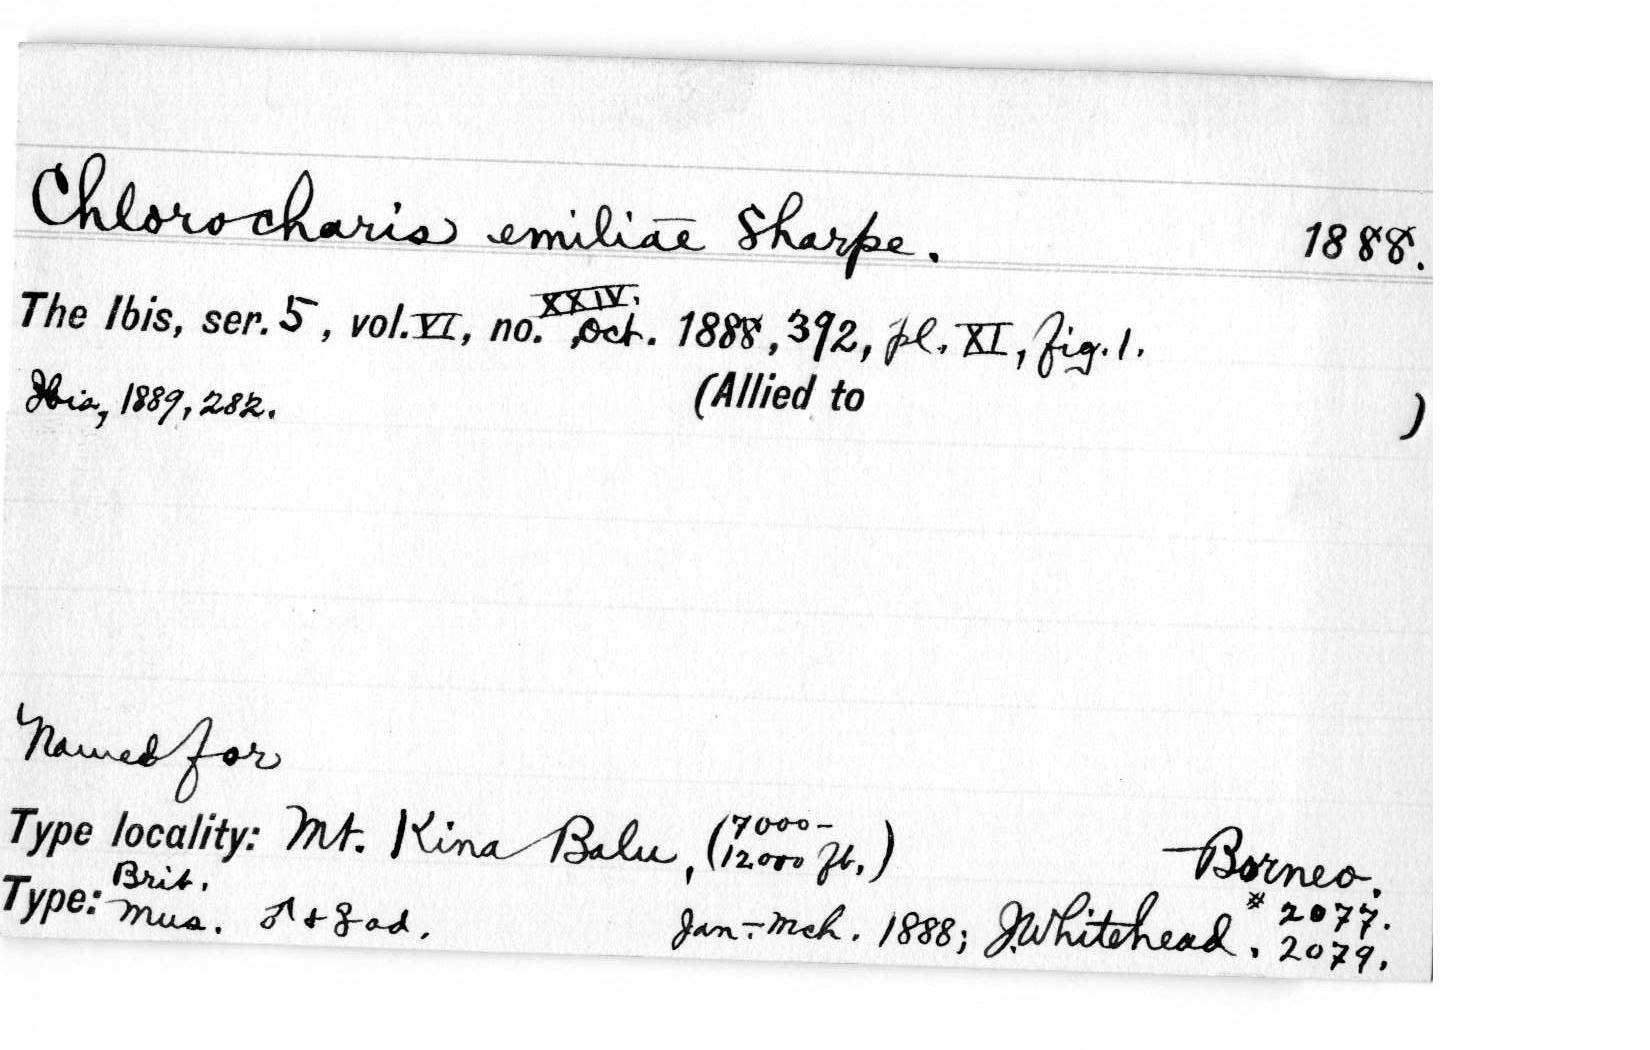 Chlorocharis emiliae Sharpe. 1888.
The Ibis, ser. 5, vol. VI, no. XXIV, Oct. 1888, 392, pl. XI, fig. 1.
Ibis, 1889, 282. (Allied to )
Named for
Type locality: Mt. Kina Balu, (7000-12000 ft.) Borneo.
Type: Brit. Mus. ♂ & ♀ ad. Jan.-Mch. 1888; J. Whitehead. # 2077. 2079.